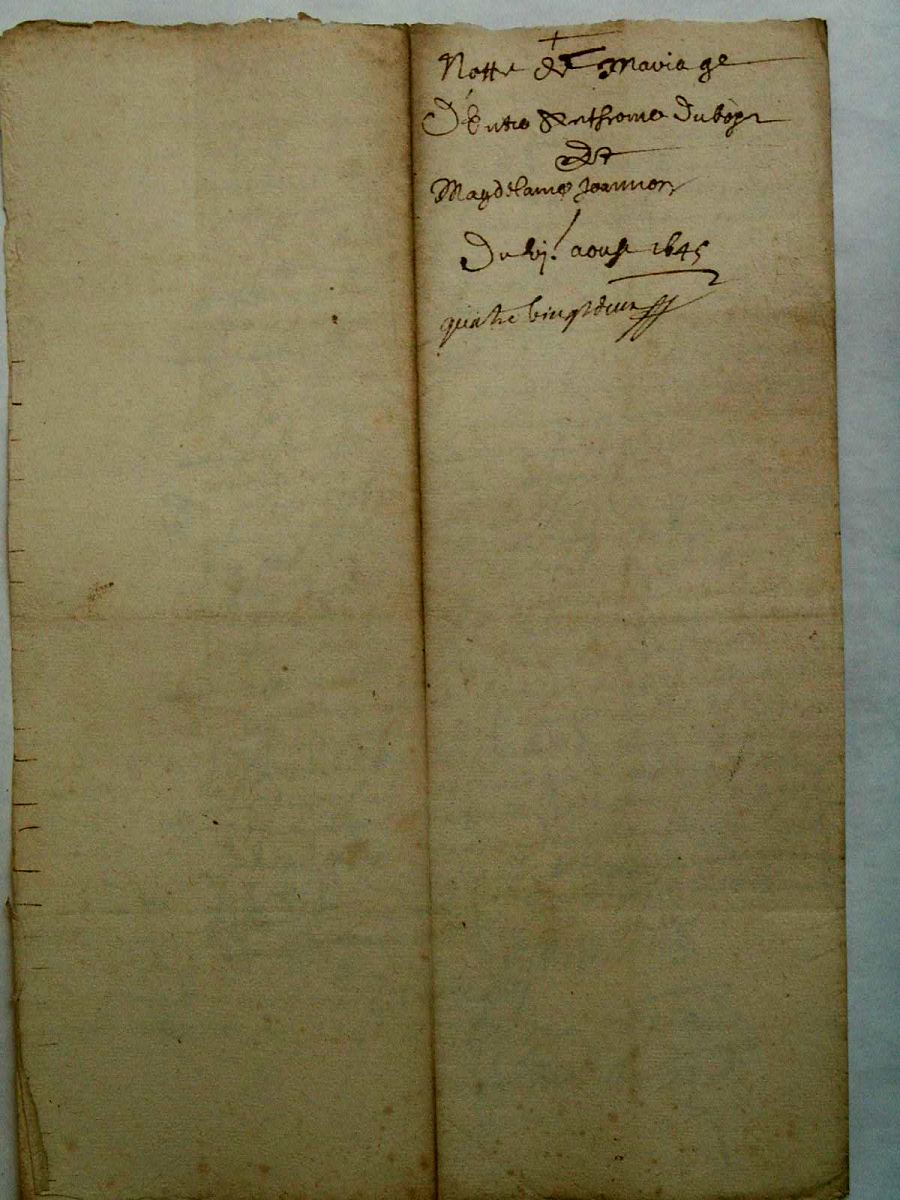 Notte de Mariage
D'Entre Anthoine Duboys
Et
Magdelaine Joannon
Du vj.e aoust 1645
quatre vingt deux